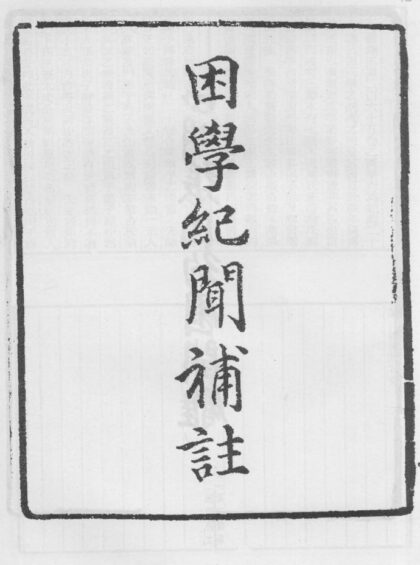 困學紀聞補註